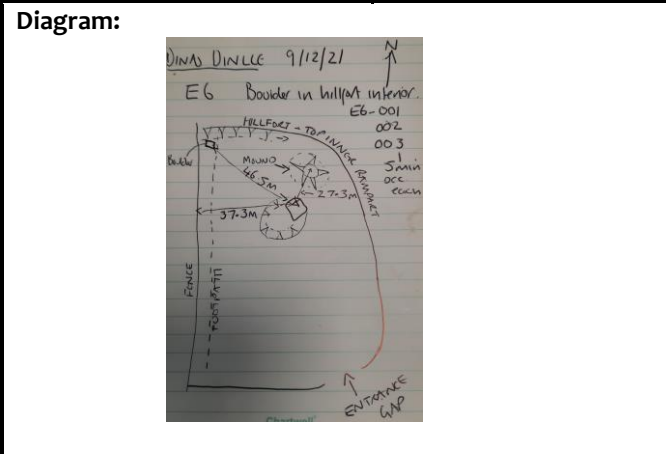 Diagram:
DINAS DINLLE 9/12/21
N
E6 Boulder in hillfort interior.
E6-001
002
003
5min
occ
each
HILLFORT - TOP INNER RAMPART
Boulder
MOUND
46.5M
27.3M
37.3M
FENCE
FOOTPATH
ENTRANCE
GAP